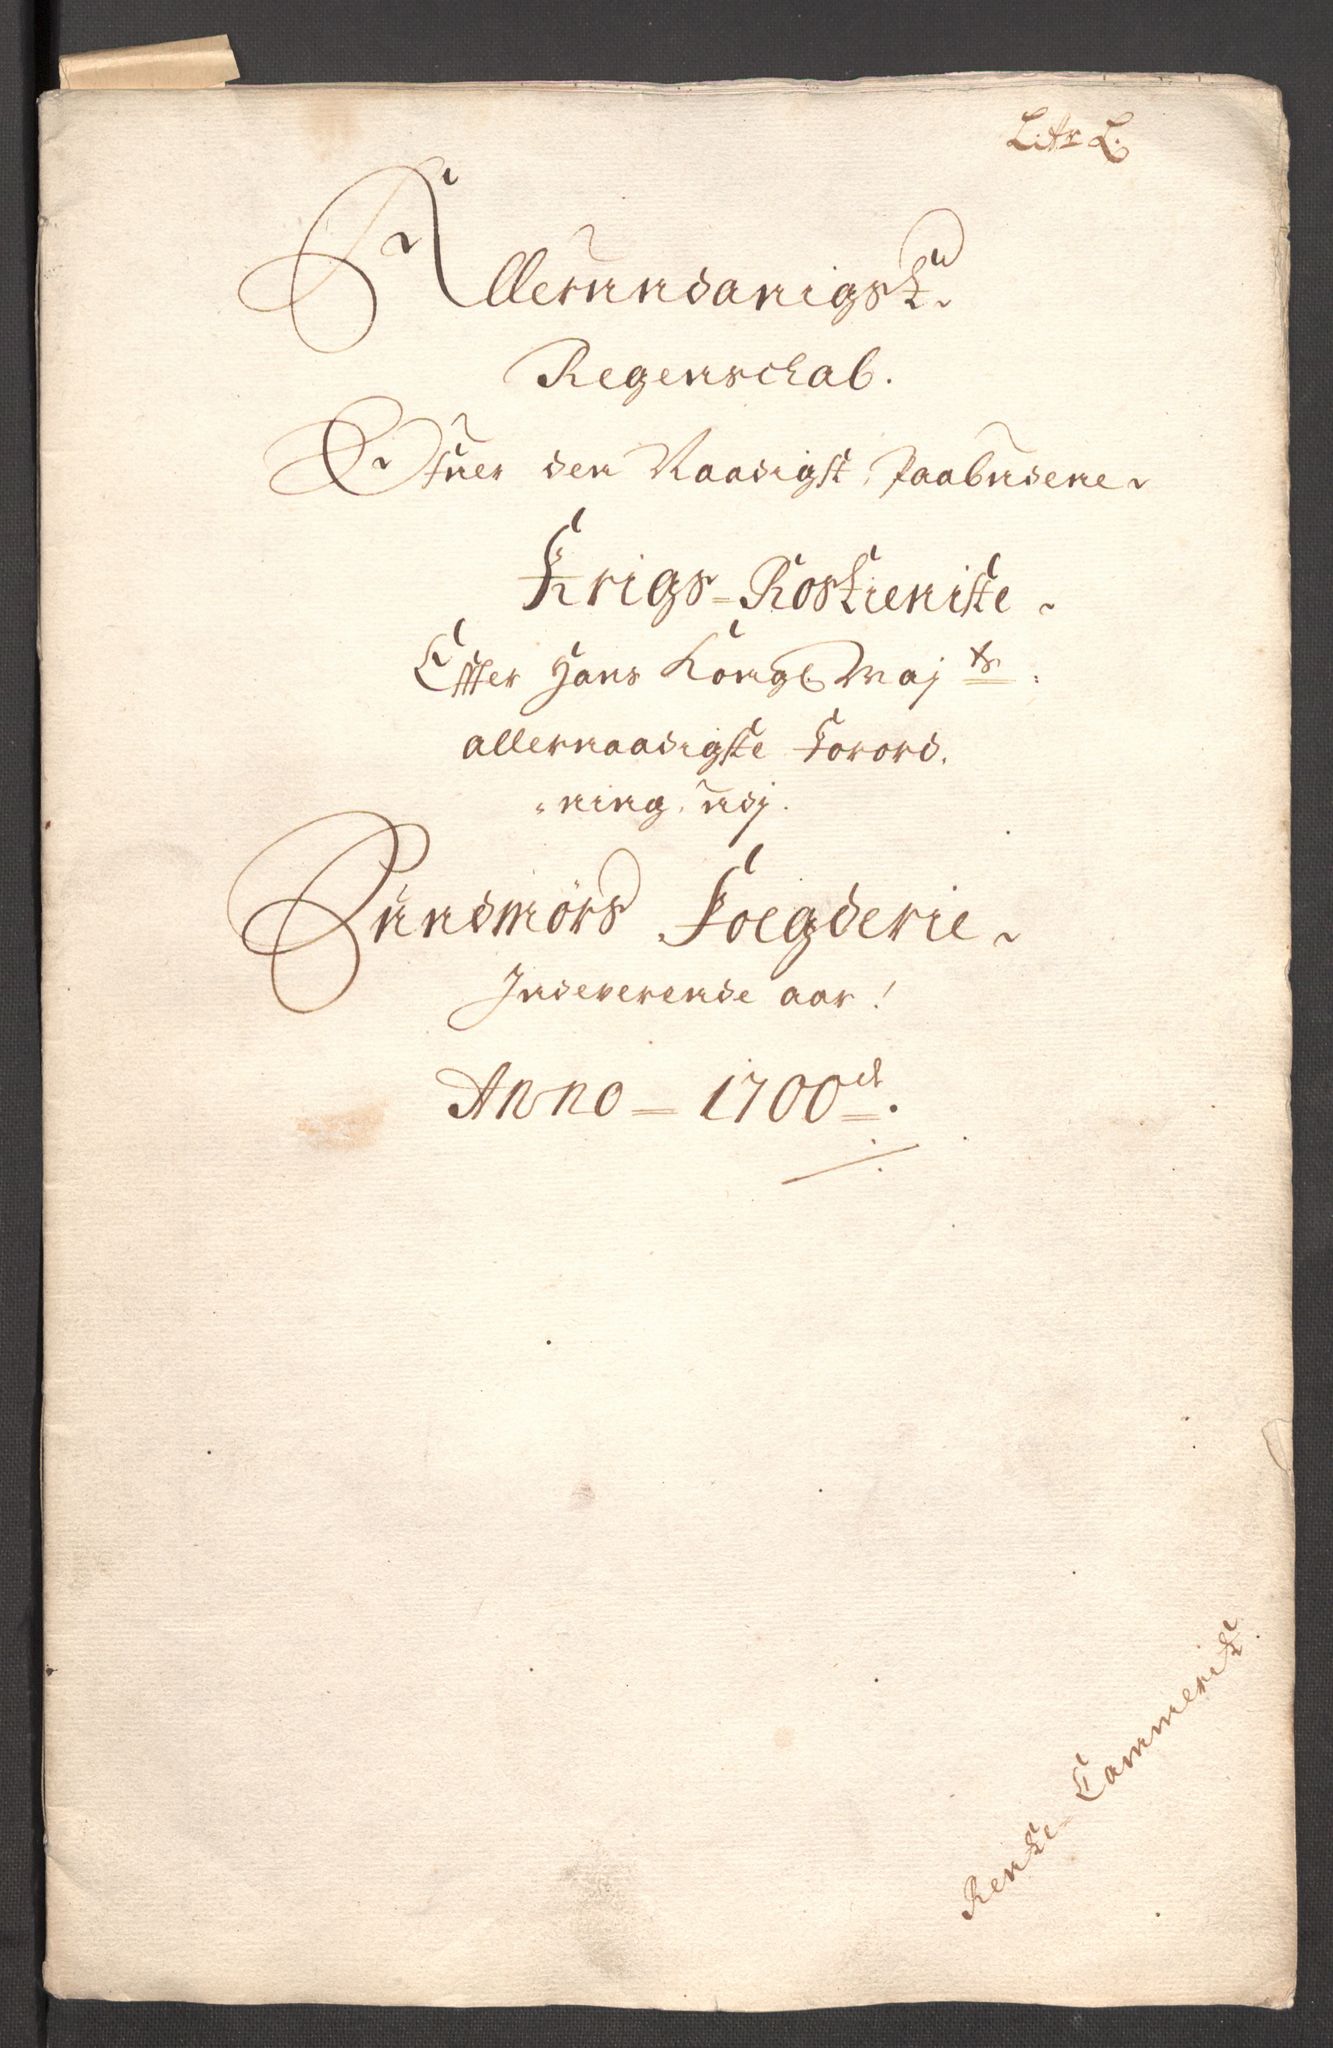 Litr L.
Allerundanigst
Regenschab.
Ofuer den Naadigst Paabudene
Krigs=Rostieniste
Effter Hans Kongl Maj ts:
allernaadigste Forord,
"ning, udj.
Sundmørs Foegderie
Indeverende aar!
Anno = 1700 dt.
Rente Cammerit